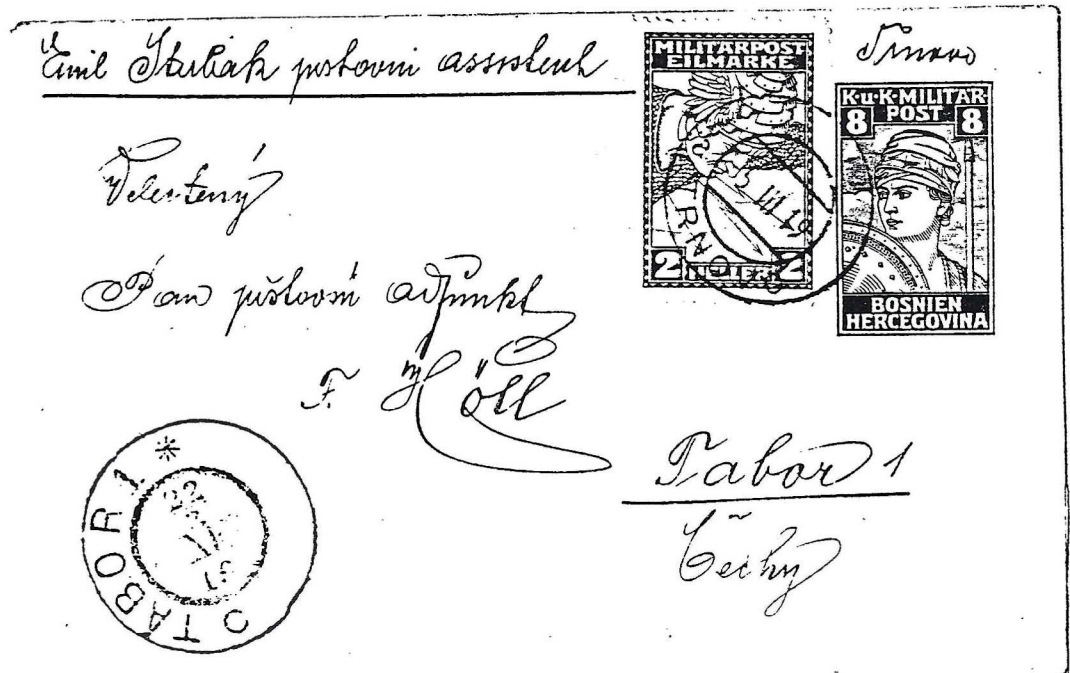 Emil Stubák poštovni assistent
Trnovo
MILITÄRPOST
EILMARKE
2 HELLER 2
K.u.K.MILITÄR
8 POST 8
BOSNIEN
HERCEGOVINA
TRNOVO
III 18
Velectený
Pan poštovni adjunkt
F. Höll
Tabor 1
Čechy
TÁBOR 1 *